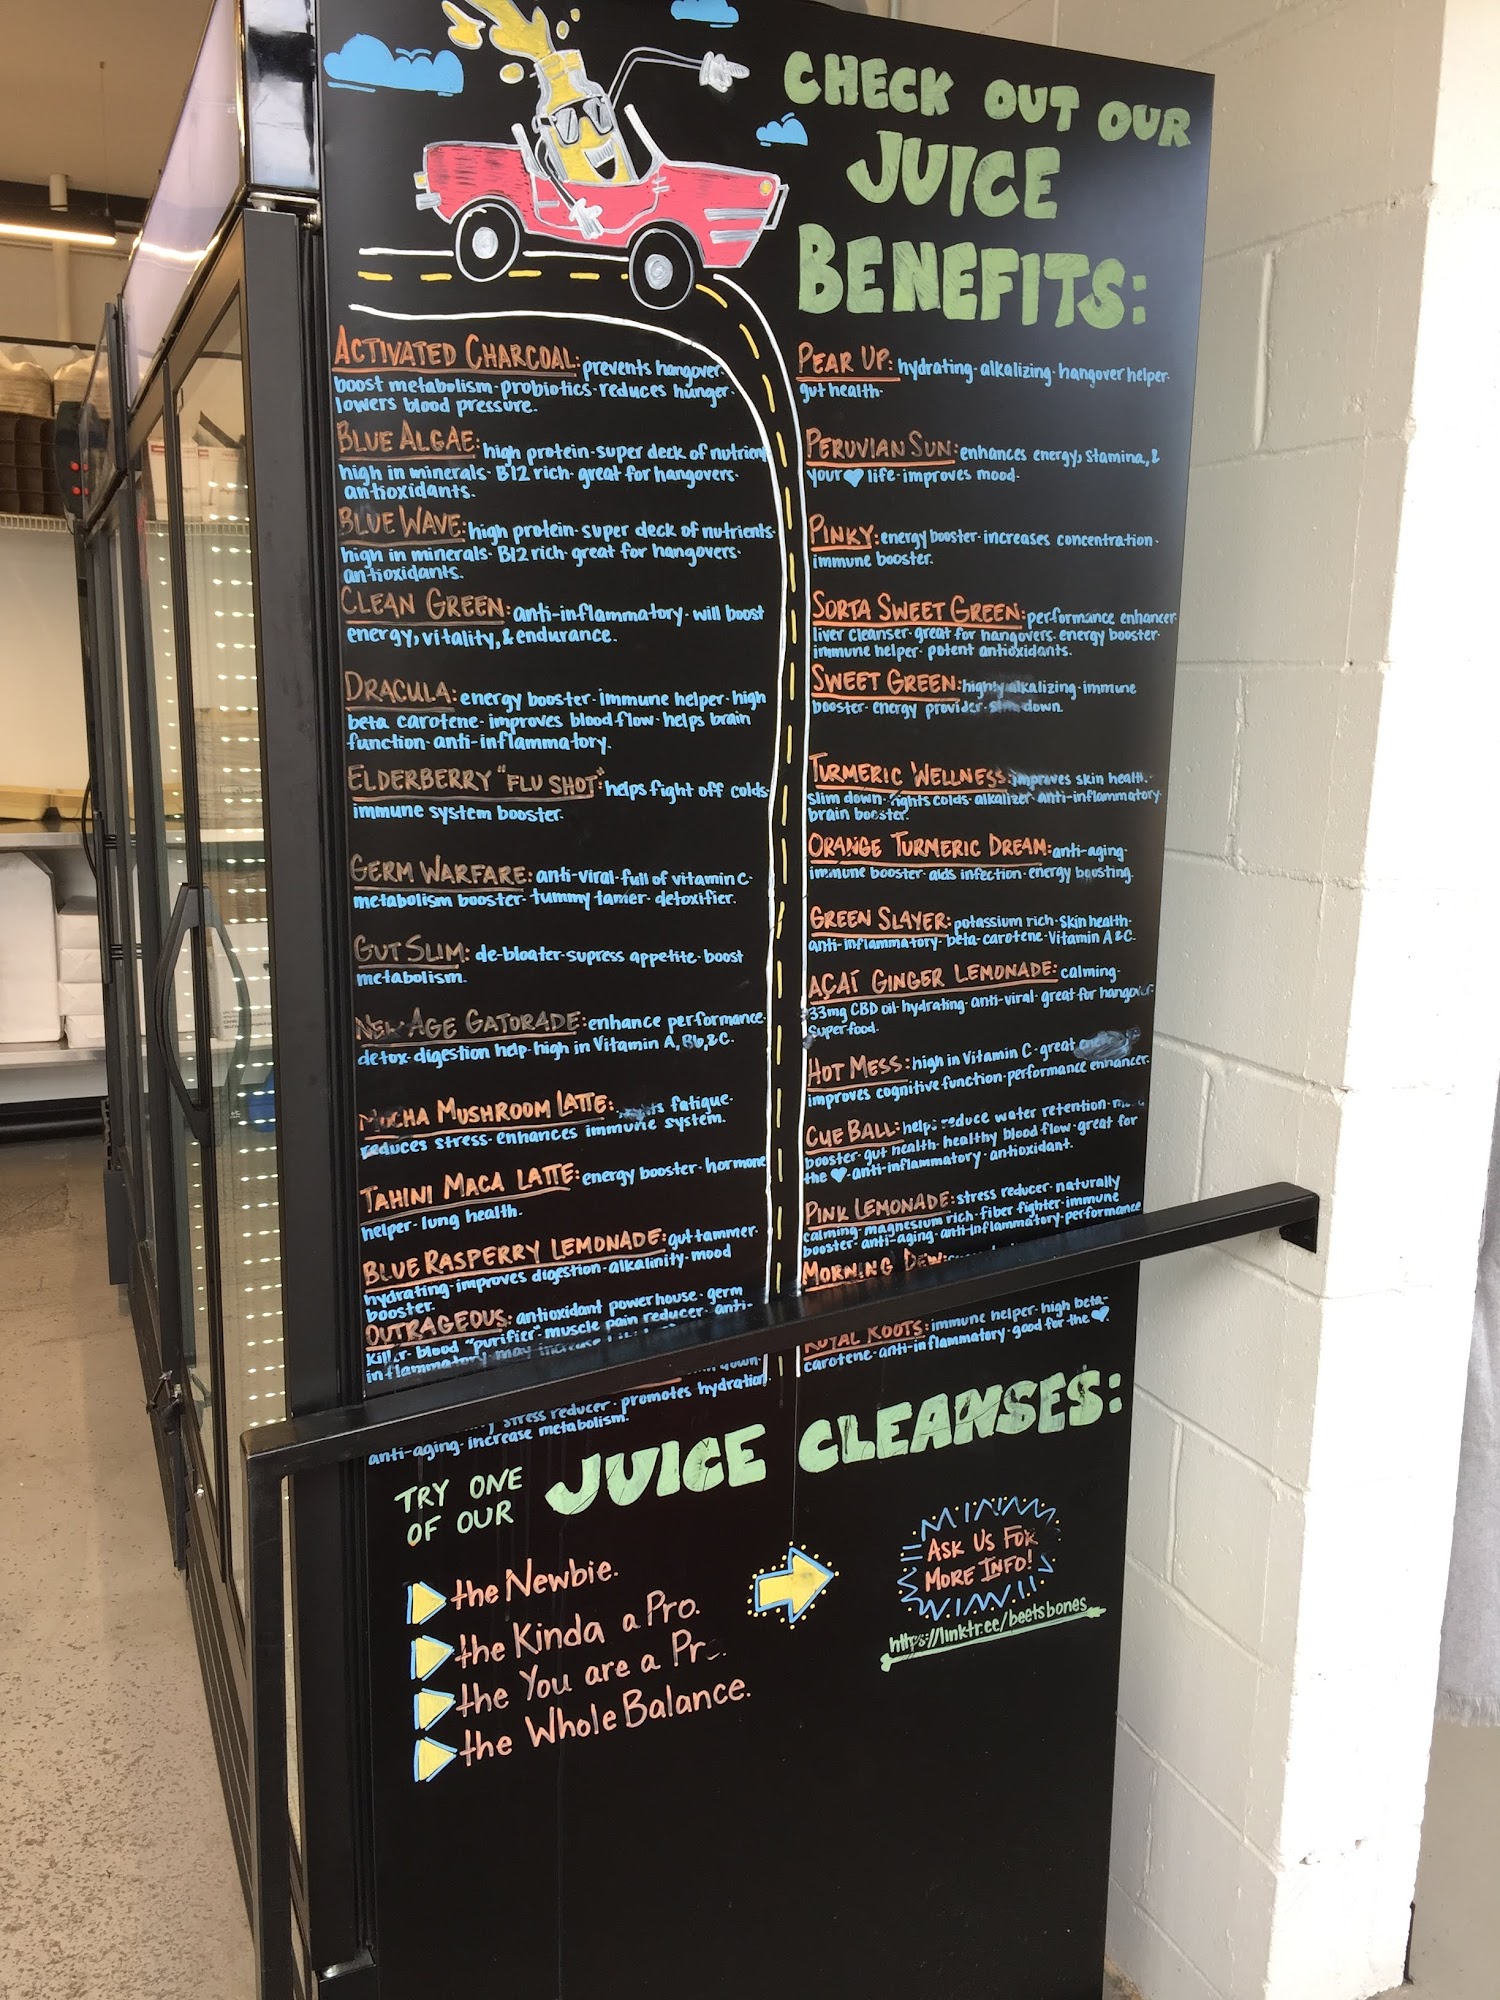 CHECK OUT OUR
JUICE
BENEFITS:
ACTIVATED CHARCOAL: prevents hangover·
boost metabolism·probiotics·reduces hunger·
lowers blood pressure.
BLUE ALGAE: high protein·super deck of nutrien
high in minerals· B12 rich·great for hangovers·
antioxidants.
BLUE WAVE: high protein·super deck of nutrients·
high in minerals· B12 rich·great for hangovers·
antioxidants.
CLEAN GREEN: anti-inflammatory·will boost
energy, vitality, & endurance.
DRACULA: energy booster·immune helper·high
beta carotene·improves blood flow·helps brain
function·anti-inflammatory.
ELDERBERRY "FLU SHOT": helps fight off colds·
immune system booster.
GERM WARFARE: anti-viral·full of vitamin C·
metabolism booster·tummy tamer·detoxifier.
GUT SLIM: de-bloater·supress appetite·boost
metabolism.
NEW AGE GATORADE: enhance performance·
detox·digestion help·high in Vitamin A, B6, & C.
MOCHA MUSHROOM LATTE: fatigue·
reduces stress·enhances immune system.
TAHINI MACA LATTE: energy booster·hormone
helper·lung health.
BLUE RASPERRY LEMONADE: gut tammer·
hydrating·improves digestion·alkalinity·mood
booster.
OUTRAGEOUS: antioxidant powerhouse·germ
killer·blood "purifier"·muscle pain reducer·anti-
inflammatory·may increase
down·
stress reducer·promotes hydration·
anti-aging·increase metabolism.
PEAR UP: hydrating·alkalizing·hangover helper·
gut health·
PERUVIAN SUN: enhances energy, stamina, &
your ♥ life·improves mood·
PINKY: energy booster·increases concentration·
immune booster.
SORTA SWEET GREEN: performance enhancer·
liver cleanser·great for hangovers·energy booster·
immune helper·potent antioxidants.
SWEET GREEN: highly alkalizing·immune
booster·energy provider· down.
TURMERIC WELLNESS: improves skin health·
slim down·fights colds·alkalizer·anti-inflammatory·
brain booster.
ORANGE TURMERIC DREAM: anti-aging·
immune booster·aids infection·energy boosting.
GREEN SLAYER: potassium rich·skin health·
anti-inflammatory·beta-carotene·Vitamin A & C.
AÇAÍ GINGER LEMONADE: calming·
33mg CBD oil·hydrating·anti-viral·great for hangover·
superfood.
HOT MESS: high in Vitamin C·great
improves cognitive function·performance enhancer.
CUE BALL: helps reduce water retention·
booster·gut health·healthy blood flow·great for
the ♥·anti-inflammatory·antioxidant.
PINK LEMONADE: stress reducer·naturally
calming·magnesium rich·fiber fighter·immune
booster·anti-aging·anti-inflammatory·performance
MORNING DEW:
ROYAL ROOTS: immune helper·high beta-
carotene·anti-inflammatory·good for the ♥.
TRY ONE
OF OUR
JUICE CLEANSES:
the Newbie.
the Kinda a Pro.
the You are a
the Whole Balance.
ASK US FOR
MORE INFO!
https://linktr.ee/beetsbones